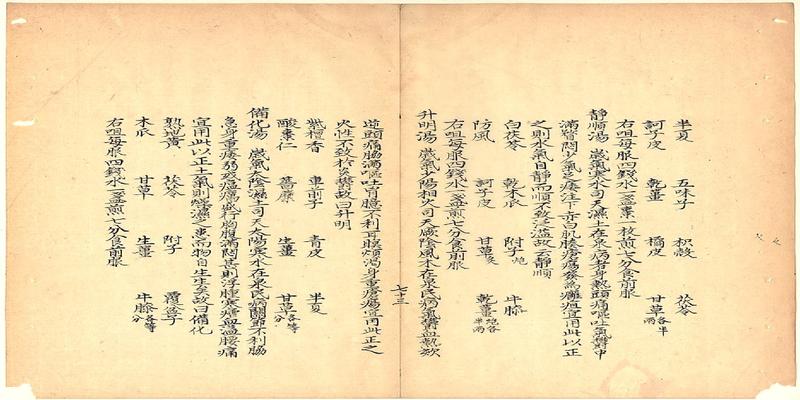 半夏 五味子 枳殼 茯苓
訶子皮 乾薑 橘皮 甘草各半兩
右㕮每服四錢水一盞棗一枚煎七分食前服
靜順湯 歲氣寒水司天濕土在泉病者身熱頭痛嘔吐氣鬱中
滿瞀悶少氣足痿注下赤白肌腠瘡瘍發為癰疽宜用此以正
之則水氣自靜而順不致泛溢故云靜順
白茯苓 乾木瓜 附子炮 牛膝
防風 訶子皮 甘草炙 乾薑炮各半兩
右㕮每服四錢水一盞煎七分食前服
升明湯 歲氣少陽相火司天厥陰風木在泉民病氣鬱血熱欬
七十三
逆頭痛脇滿嘔吐胷臆不利耳聾煩渴身重瘡瘍宜用此正之
火性不致於炎鬱故曰升明
紫檀香 車前子 青皮 半夏
酸棗仁 薔蘼 生薑 甘草各等分
備化湯 歲氣太陰濕土司天太陽寒水在泉民病關節不利脇
急身重痿弱或瘟癘盛行胸腹滿悶甚則浮腫寒瘧血溢腰痛
宜用此以正土氣則燥濕不患而物自生生矣故曰備化
熟地黃 茯苓 附子 覆盆子
木瓜 甘草 生薑 牛膝各等分
右㕮每服四錢水一盞煎七分食前服